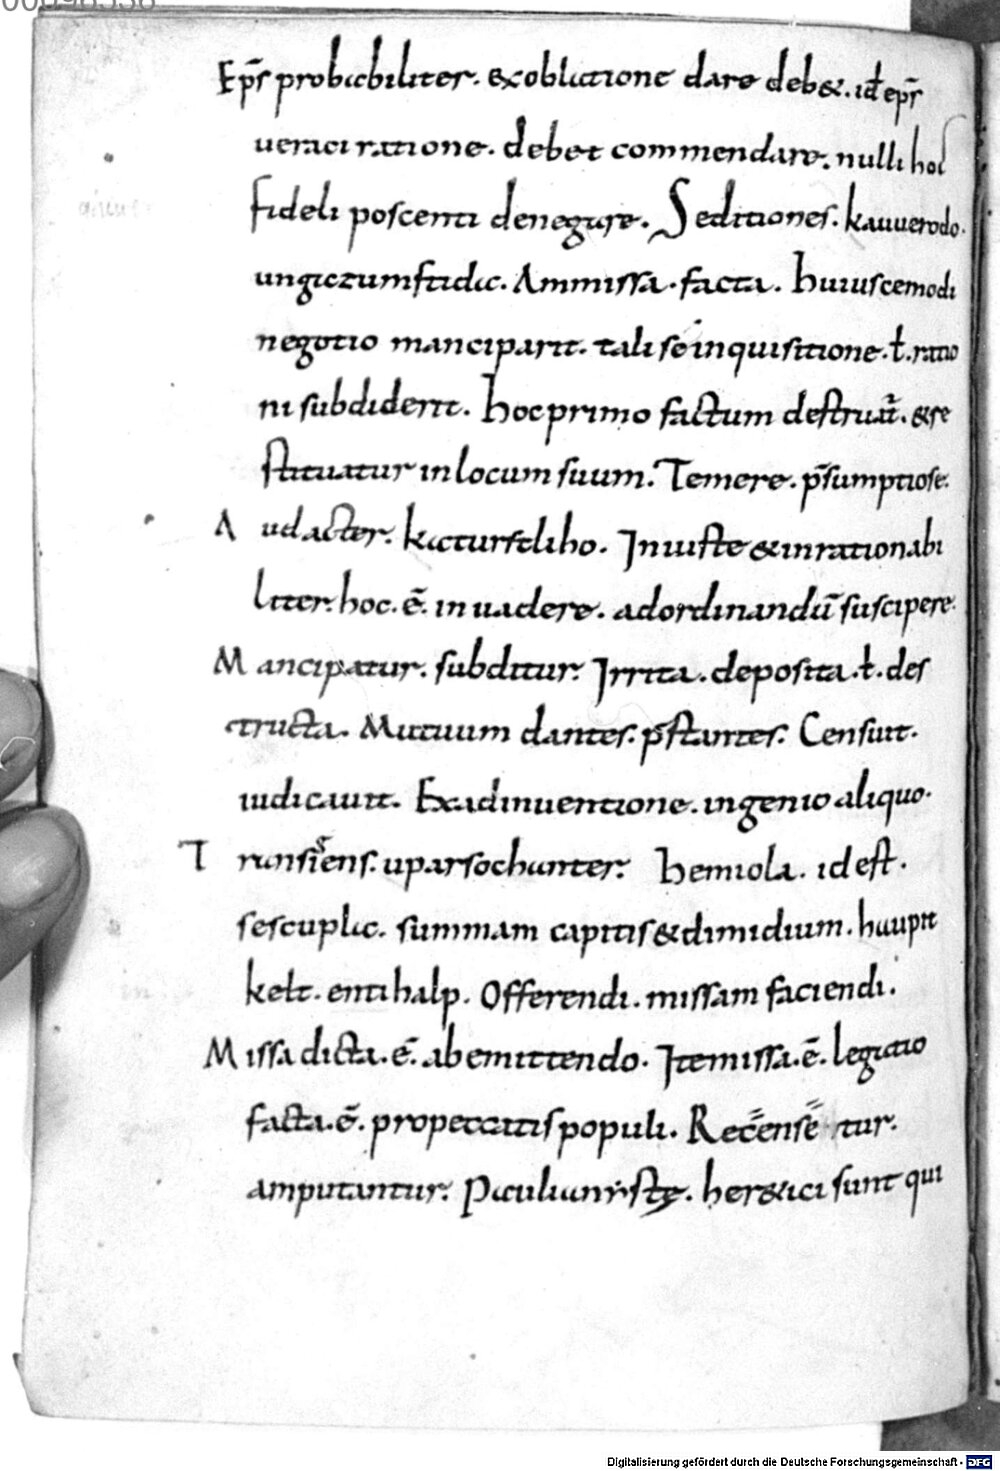 00096536
Ep̄s probabiliter. exoblatione dare deb&. id̄ ep̄s
ueraci ratione. debet commendare. nulli hoc
fideli poscenti denegare. Seditiones. kauuerodo.
ungiczumftidic. Ammissa. facta. huiuscemodi
negotio manciparit. tali se inquisitione. ł. ratio
ni subdiderit. hoc primo factum destruat̄. & re
stituatur in locum suum. Temere. p̄sumptiose.
Audacter. kicturstliho. Iniuste & inrationabi
liter. hoc. ē. inuadere. adordinandū suscipere.
Mancipatur. subditur. Irrita. deposita. ł. des
tructa. Mutuum dantes. p̄stantes. Censuit.
iudicauit. Exadinuentione. ingenio aliquo.
Transiens. uparsochanter. hemiola. id est.
sescuplic. summam capitis & dimidium. haupit
kelt. enti halp. Offerendi. missam faciendi.
Missa dicta. ē. ab emittendo. Ite missa. ē. legatio
facta. ē. propeccatis populi. Recensentur.
amputantur. Paulianiste. her&ici sunt qui
Digitalisierung gefördert durch die Deutsche Forschungsgemeinschaft - DFG